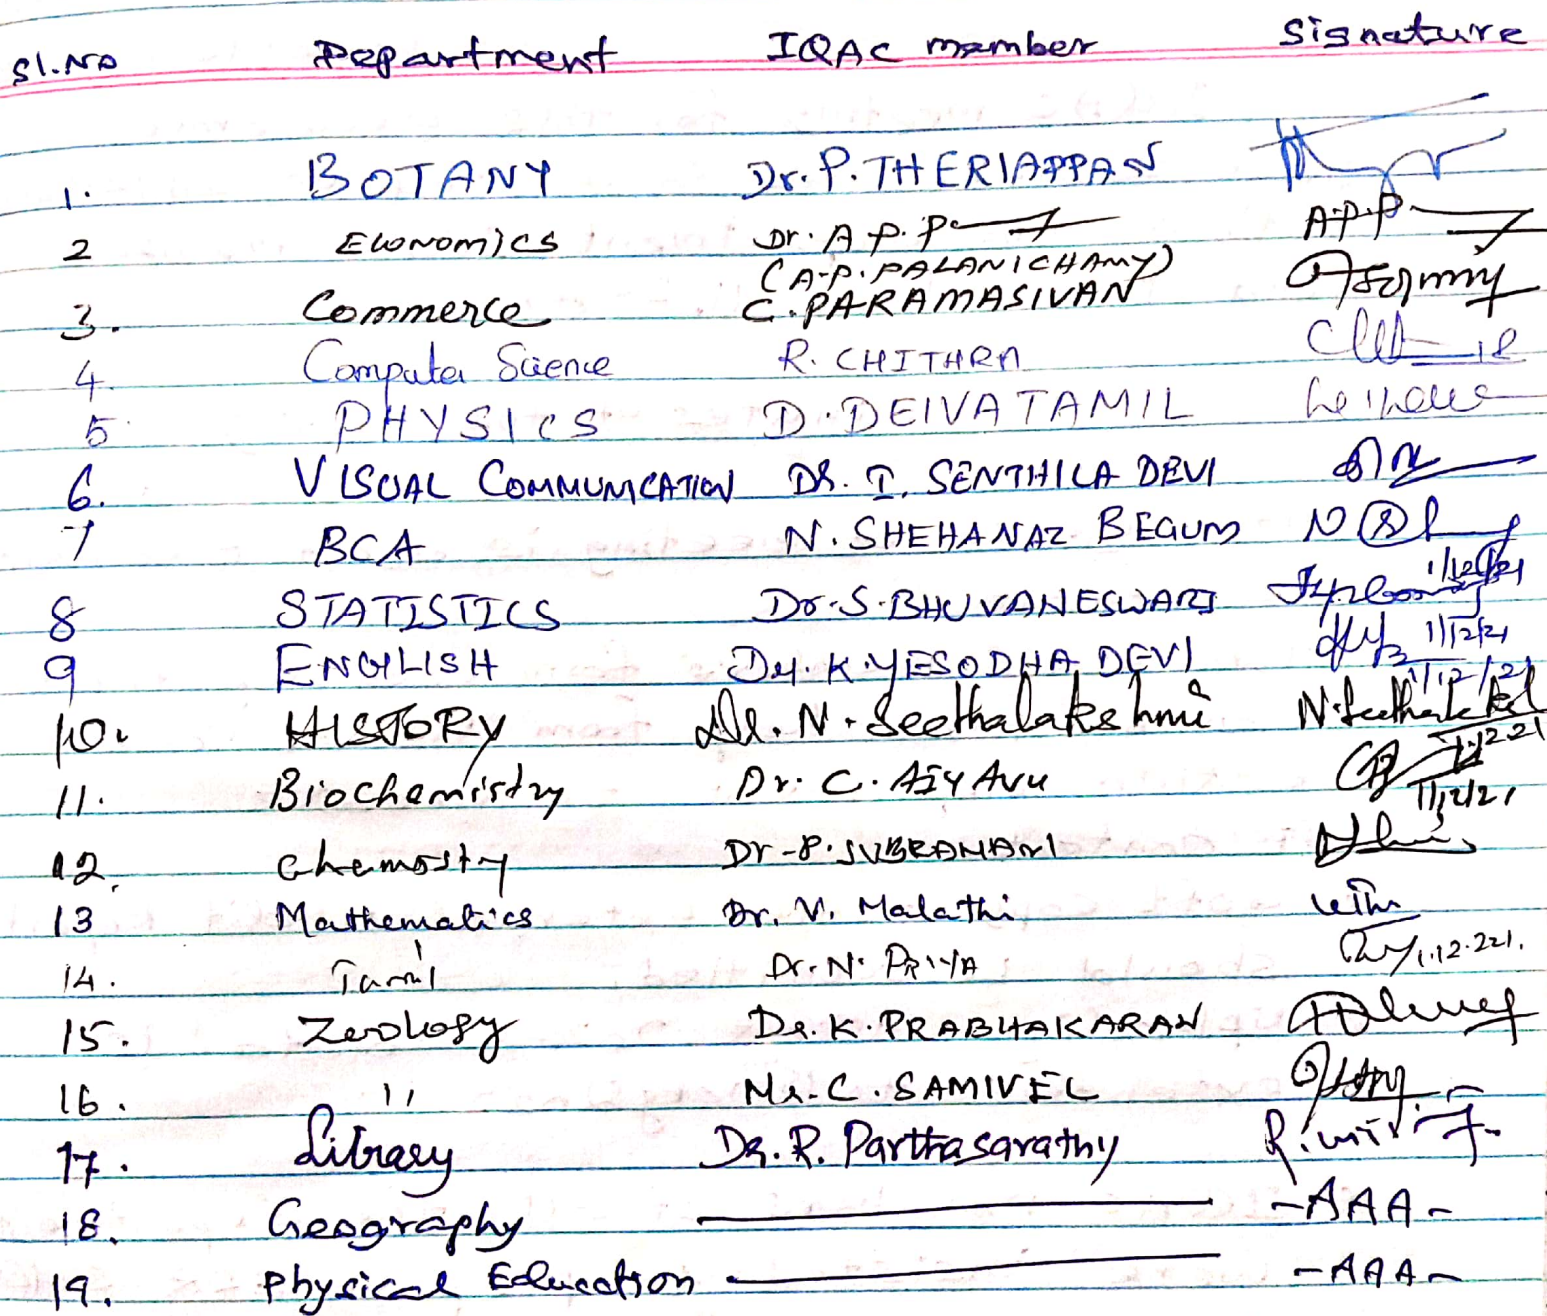 Sl.No Department IQAC member Signature
1. BOTANY Dr. P. THERIAPPAN
2 Economics Dr. A.P.P. A.P.P
(A.P. PALANICHAMY)
3. Commerce C. PARAMASIVAN
4. Computer Science R. CHITHRA
5 PHYSICS D. DEIVATAMIL
6. VISUAL COMMUNICATION DR. T. SENTHILA DEVI
7 BCA N. SHEHANAZ BEGUM
1/12/21
8 STATISTICS Dr. S. BHUVANESWARI
1/12/21
9 ENGLISH Dr. K. YESODHA DEVI
1/12/21
10. HISTORY Dr. N. Seethalakshmi
1.12.21
11. Biochemistry Dr. C. AIYAVU
1/12/21
12. Chemistry Dr. P. SUBRAMANI
13 Mathematics Dr. V. Malathi
14. Tamil Dr. N. PRIYA 1.12.221.
15. Zoology Dr. K. PRABHAKARAN
16. " Mr. C. SAMIVEL
17. Library Dr. R. Parthasarathy
18. Geography - AAA -
19. Physical Education - AAA -